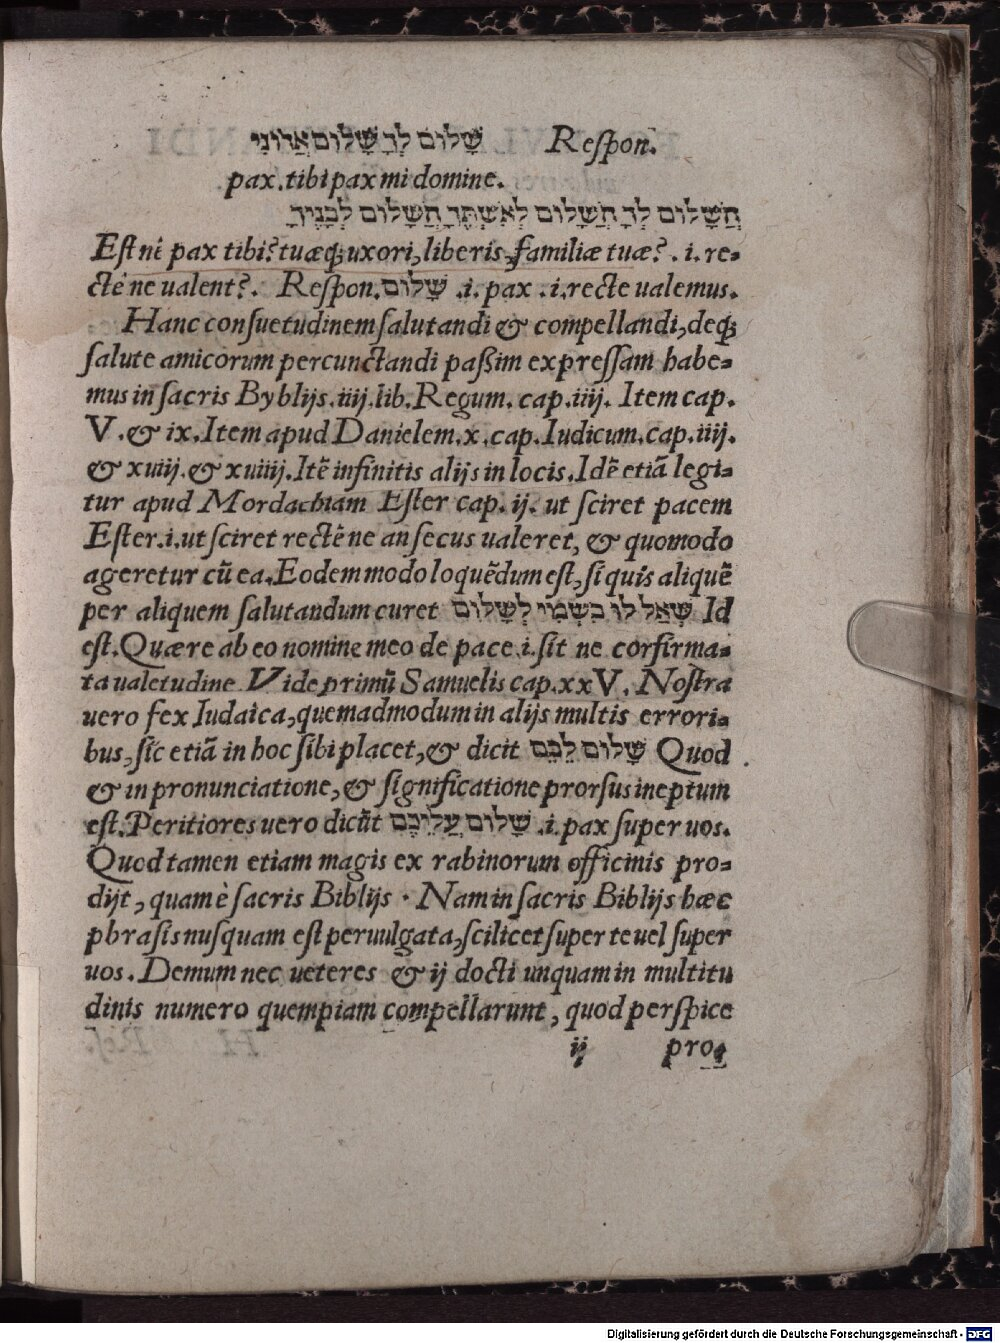 שָׁלוֹם לְךָ שָׁלוֹם אֲדוֹנִי Reſpon.
pax.tibi pax mi domine.
הֲשָׁלוֹם לְךָ הֲשָׁלוֹם לְאִשְׁתְּךָ הֲשָׁלוֹם לְבָנֶיךָ
Eſt nè pax tibi? tuæq; uxori, liberis, familiæ tuæ? .i. re-
ctè ne ualent?. Reſpon. שָׁלוֹם .i. pax .i. recte ualemus.
Hanc conſuetudinem ſalutandi & compellandi, deq;
ſalute amicorum percunctandi paßim expreſſam habe-
mus in ſacris Byblijs.iiij.lib.Regum. cap.iiij. Item cap.
V. & ix. Item apud Danielem.x.cap. Iudicum.cap.iiij.
& xuiij. & xuiiij. Itē infinitis alijs in locis. Idē etiā legi-
tur apud Mordachiam Eſter cap. ij. ut ſciret pacem
Eſter.i. ut ſciret rectè ne an ſecus ualeret, & quomodo
ageretur cū ea. Eodem modo loquēdum eſt, ſi quis aliquē
per aliquem ſalutandum curet שְׁאַל לוֹ בִשְׁמִי לְשָׁלוֹם Id
eſt. Quære ab eo nomine meo de pace .i. ſit ne confirma-
ta ualetudine. Vide primū Samuelis cap.xxV. Noſtra
uero fex Iudaica, quemadmodum in alijs multis errori-
bus, ſic etiā in hoc ſibi placet, & dicit שָׁלוֹם לָכֶם Quod
& in pronunciatione, & ſignificatione prorſus ineptum
eſt. Peritiores uero dicūt שָׁלוֹם עֲלֵיכֶם .i. pax ſuper uos.
Quod tamen etiam magis ex rabinorum officinis pro-
dijt, quam è ſacris Biblijs . Nam in ſacris Biblijs hæc
phraſis nuſquam eſt peruulgata, ſcilicet ſuper te uel ſuper
uos. Demum nec ueteres & ij docti unquam in multitu
dinis numero quempiam compellarunt, quod perſpice
ij pro-
Digitalisierung gefördert durch die Deutsche Forschungsgemeinschaft - DFG